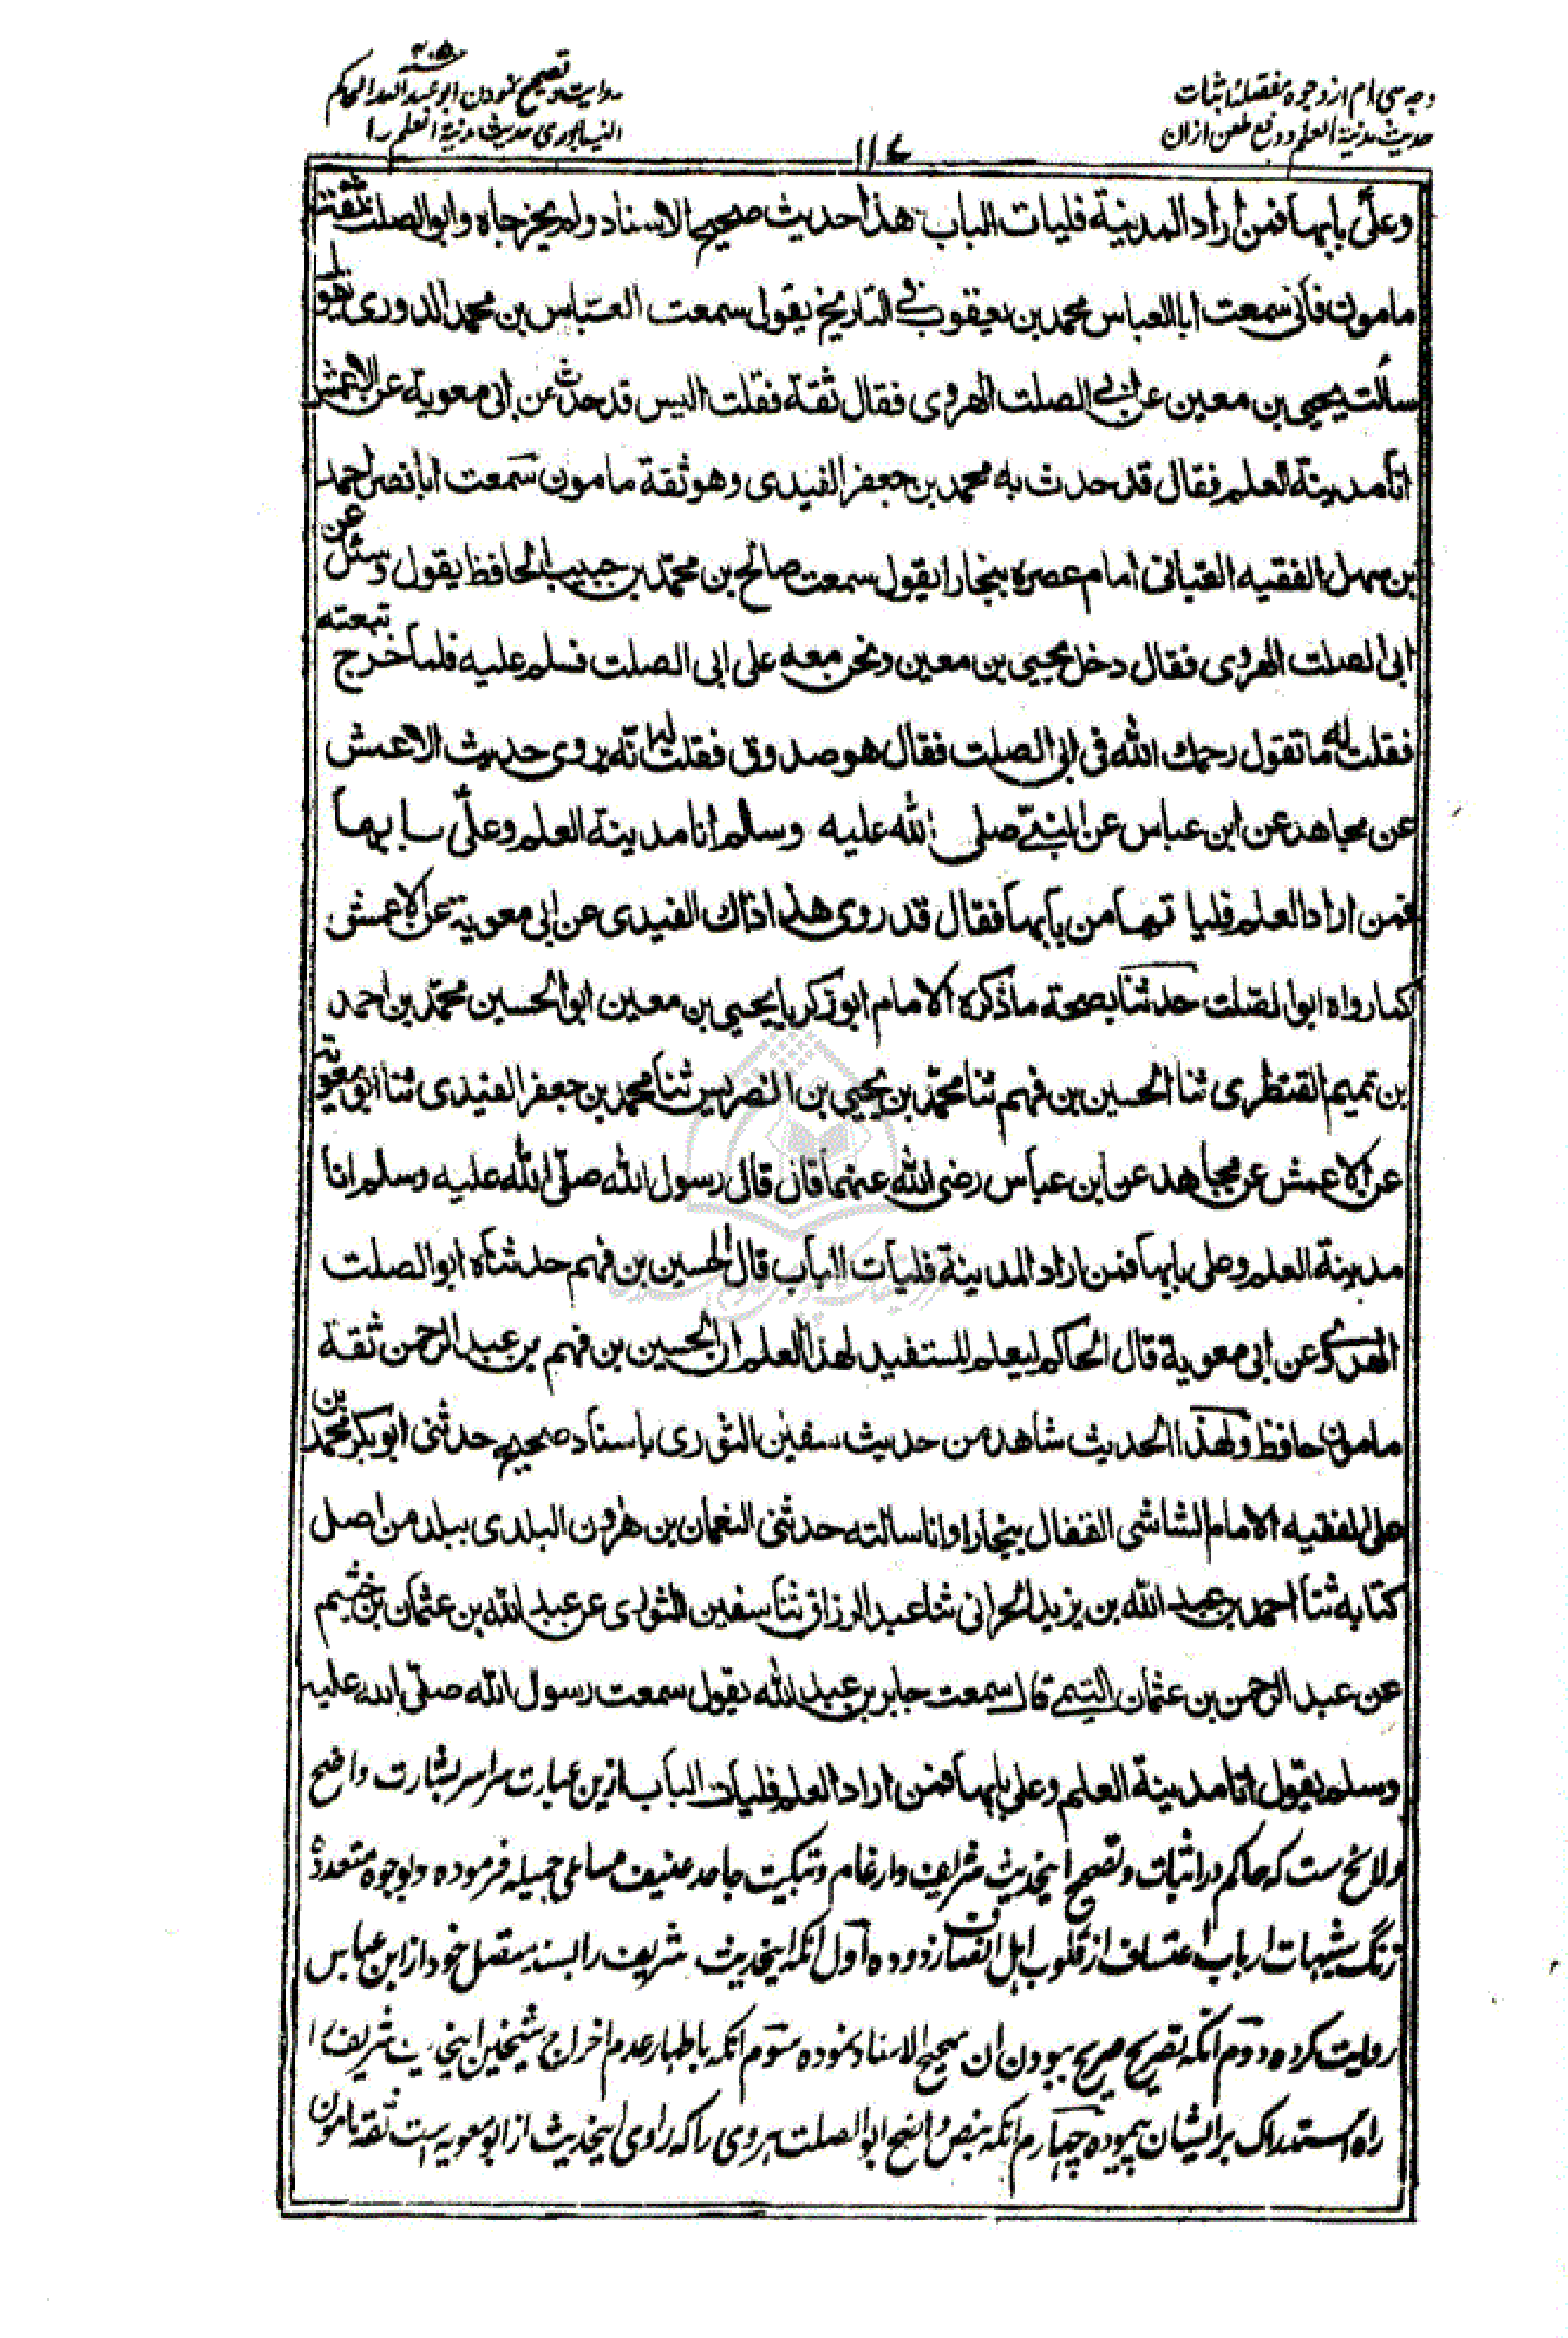 وجہ سی ام از وجوہ مفصلہ اثبات
حدیث مدنیۃ العلم و دفع طعن ازان
روایت و تصحیح نمودن ابو عبد اللہ الحاکم
النیسابوری حدیث مدنیۃ العلم را
۱۱۶
وعلیّ بابها فمن اراد المدینة فلیات الباب هذا حدیث صحیح الاسناد ولم یخرجاه وابو الصلت ثقة
مامون فانی سمعت ابا العباس محمد بن یعقوب فی التاریخ یقول سمعت العباس بن محمد الدوری یقول
سألت یحیی بن معین عن ابی الصلت الهروی فقال ثقة فقلت الیس قد حدث عن ابی معویة عن الاعمش
انا مدینة العلم فقال قد حدث به محمد بن جعفر الفیدی وهو ثقة مامون سمعت ابا نصر احمد
بن سهل الفقیه القبانی امام عصره ببخارا یقول سمعت صالح بن محمد بن حبیب الحافظ یقول وسئل عن
ابی الصلت الهروی فقال دخل یحیی بن معین ونحن معه علی ابی الصلت فسلم علیه فلما خرج تبعته
فقلت له ما تقول رحمك الله فی ابی الصلت فقال هو صدوق فقلت له انه یروی حدیث الاعمش
عن مجاهد عن ابن عباس عن النبیّ صلی الله علیه وسلم انا مدینة العلم وعلیّ بابها
فمن اراد العلم فلیا تها من بابها فقال قد روی هذا ذاك الفیدی عن ابی معویة عن الاعمش
کما رواه ابو الصلت حدثنا بصحة ما ذکره الامام ابو زکریا یحیی بن معین ابو الحسین محمد بن احمد
بن تمیم القنطری ثنا الحسین بن فهم ثنا محمد بن یحیی بن الضریس ثنا محمد بن جعفر الفیدی ثنا ابو معویة
عن الاعمش عن مجاهد عن ابن عباس رضی الله عنهما قال قال رسول الله صلّی الله علیه وسلم انا
مدینة العلم وعلی بابها فمن اراد المدینة فلیات الباب قال الحسین بن فهم حدثناه ابو الصلت
الهروی عن ابی معویة قال الحاکم لیعلم المستفید لهذا العلم ان الحسین بن فهم بن عبد الرحمن ثقة
مامون حافظ ولهذا الحدیث شاهد من حدیث سفین الثوری باسناد صحیح حدثنی ابو بکر محمد بن
علی الفقیه الامام الشاشی القفال ببخارا وانا سالته حدثنی النعمان بن هرون البلدی ببلد من اصل
کتابه ثنا احمد بن عبد الله بن یزید الحرانی ثنا عبد الرزاق ثنا سفین الثوری عن عبد الله بن عثمان بن خثیم
عن عبد الرحمن بن عثمان التیمی قال سمعت جابر بن عبد الله یقول سمعت رسول الله صلّی الله علیه
وسلم یقول انا مدینة العلم وعلی بابها فمن اراد العلم فلیات الباب ازین عبارت سراسر بشارت واضح
ولائح ست که حاکم در اثبات و تصحیح اینحدیث شریف و ارغام و تبکیت جاحد عنیف مساعی جمیله فرموده و بوجوه متعدده
زنگ شبهات ارباب اعتساف از قلوب اهل انصاف زدوده اول انکه اینحدیث شریف را بسند متصل خود از ابن عباس
روایت کرده دوم انکه تصریح صریح ببودن ان صحیح الاسناد نموده سوم انکه باظهار عدم اخراج شیخین اینحدیث شریف را
راه استدراک بر ایشان پیموده چهارم انکه بنص واضح ابو الصلت هروی را که راوی اینحدیث از ابو معویه است ثقه مامون